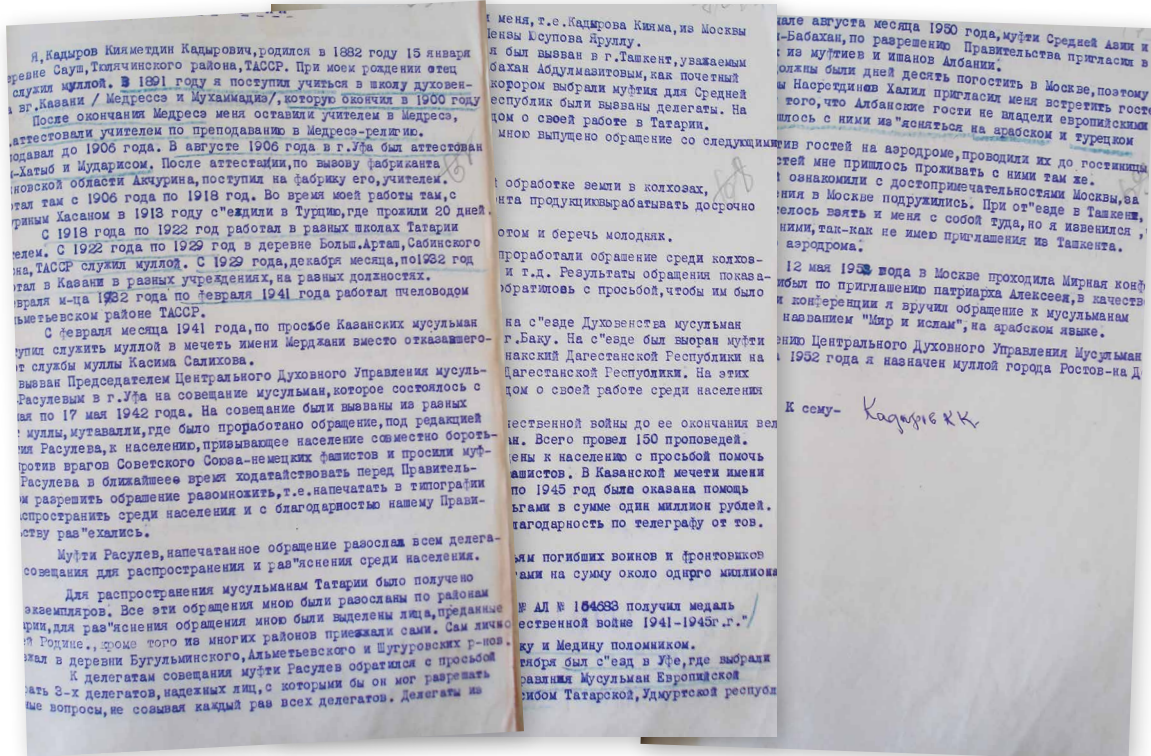 Я,Кадыров Кияметдин Кадырович,родился в 1882 году 15 января
деревне Сауш,Тюлячинского района,ТАССР. При моем рождении отец
служил муллой. В 1891 году я поступил учиться в школу духовен-
вг.Казани / Медрессэ и Мухаммадиэ/,которую окончил в 1900 году
После окончания Медресэ меня оставили учителем в Медресэ,
аттестовали учителем по преподаванию в Медресэ-религию.
подавал до 1906 года. В августе 1906 года в г.Уфа был аттестован
-Хатыб и Мударисом. После аттестации,по вызову фабриканта
новской области Акчурина,поступил на фабрику его,учителем.
отал там с 1906 года по 1918 год. Во время моей работы там,с
уриным Хасаном в 1913 году с"ездили в Турцию,где прожили 20 дней.
С 1918 года по 1922 год работал в разных школах Татарии
телем. С 1922 года по 1929 год в деревне Больш.Арташ,Сабинского
она,ТАССР служил муллой. С 1929 года,декабря месяца,по1932 год
отал в Казани в разных учреждениях,на разных должностях.
евраля м-ца 1932 года по февраля 1941 года работал пчеловодом
льметьевском районе ТАССР.
С февраля месяца 1941 года,по просьбе Казанских мусульман
тупил служить муллой в мечеть имени Мерджани вместо отказавшего-
от службы муллы Касима Салихова.
вызван Председателем Центрального Духовного Управления мусуль-
Расулевым в г.Уфа на совещание мусульман,которое состоялось с
мая по 17 мая 1942 года. На совещание были вызваны из разных
муллы,мутавалли,где было проработано обращение,под редакцией
тия Расулева,к населению,призывающее население совместно бороть-
против врагов Советского Союза-немецких фашистов и просили муф-
Расулева в ближайшеее время ходатайствовать перед Правитель-
м разрешить обращение размножить,т.е.напечатать в типографии
спространить среди населения и с благодарностью нашему Прави-
ству раз"ехались.
Муфти Расулев,напечатанное обращение разослал всем делега-
совещания для распространения и раз"яснения среди населения.
Для распространения мусульманам Татарии было получено
экземпляров. Все эти обращения мною были разосланы по районам
арии,для раз"яснения обращения мною были выделены лица,преданные
ей Родине.,кроме того из многих районов приезжали сами. Сам лично
зжал в деревни Бугульминского,Альметьевского и Шугуровских р-нов.
К делегатам совещания муфти Расулев обратился с просьбой
рать 3-х делегатов,надежных лиц,с которыми бы он мог разрешать
ные вопросы,не созывая каждый раз всех делегатов. Делегаты из
и меня,т.е.Кадырова Кияма,из Москвы
Пензы Юсупова Яруллу.
я был вызван в г.Ташкент,уважаемым
бахан Абдулмазитовым,как почетный
котором выбрали муфтия для Средней
еспублик были вызваны делегаты. На
дом о своей работе в Татарии.
мною выпущено обращение со следующим
й обработке земли в колхозах,
онта продукциювырабатывать досрочно
отом и беречь молодняк.
проработали обращение среди колхов-
и т.д. Результаты обращения показа-
обратиловь с просьбой,чтобы им было
на с"езде Духовенства мусульман
г.Баку. На с"езде был выоран муфти
накский Дагестанской Республики на
Дагестанской Республики. На этих
дом о своей работе среди населения
чественной войны до ее окончания вел
ан. Всего провел 150 проповедей.
цены к населению с просьбой помочь
ашистов. В Казанской мечети имени
по 1945 год была оказана помощь
ьгами в сумме один миллион рублей.
лагодарность по телеграфу от тов.
ьям погибших воинов и фронтовиков
гами на сумму около одного миллиона
№ АЛ № 154683 получил медаль
ественной войне 1941-1945г.г."
ку и Медину поломником.
тября был с"езд в Уфе,где выбрали
равлния Мусульман Европейской
сибом Татарской,Удмуртской республ
але августа месяца 1950 года,муфти Средней Азии и
-Бабахан,по разрешению Правительства пригласив в
х из муфтиев и ишанов Албании.
должны были дней десять погостить в Москве,поэтому
ы Насретдинов Халил пригласил меня встретить гост
того,что Албанские гости не владели европейскими
шлось с ними из"ясняться на арабском и турецком
тив гостей на аэродроме,проводили их до гостиницы
стей мне пришлось проживать с ними там же.
й ознакомили с достопримечательностями Москвы,за
ения в Москве подружились. При от"езде в Ташкент,
телось взять и меня с собой туда,но я извенился ,
ними,так-как не имею приглашения из Ташкента.
аэродрома.
12 мая 1952 года в Москве проходила Мирная конф
ибыл по приглашению патриарха Алексеея,в качеств
и конференции я вручил обращение к мусульманам
названием "Мир и ислам",на арабском языке.
ению Центрального Духовного Управления Мусульман
1952 года я назначен муллой города Ростов-на Д
К сему- Кадыров К К